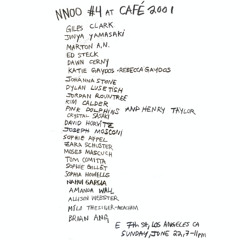 NNOO #4 AT CAFÉ 2001
GILES CLARK
JINYA YAMASAKI
MARTON A.N.
ED STECK
DAWN CERNY
KATIE GAYDOS - REBECCA GAYDOS
JOHANNA STONE
DYLAN LUSETISH
JORDAN ROUNTREE
KIM CALDER
PINK DOLPHINS AND HENRY TAYLOR
CRYSTAL SASAKI
DAVID HORVITZ
JOSEPH MOSCONI
SOPHIE APPEL
ZARA SCHUSTER
MOSES MASCUCH
TOM COMITTA
SOPHIE GILLET
SOPHIA HOWELLS
NAOMI GARCIA
AMANDA WALL
ALLISON WEBSTER
MILO
BRIAN ANG
E 7TH ST, LOS ANGELES CA
SUNDAY, JUNE 22, 7-11PM